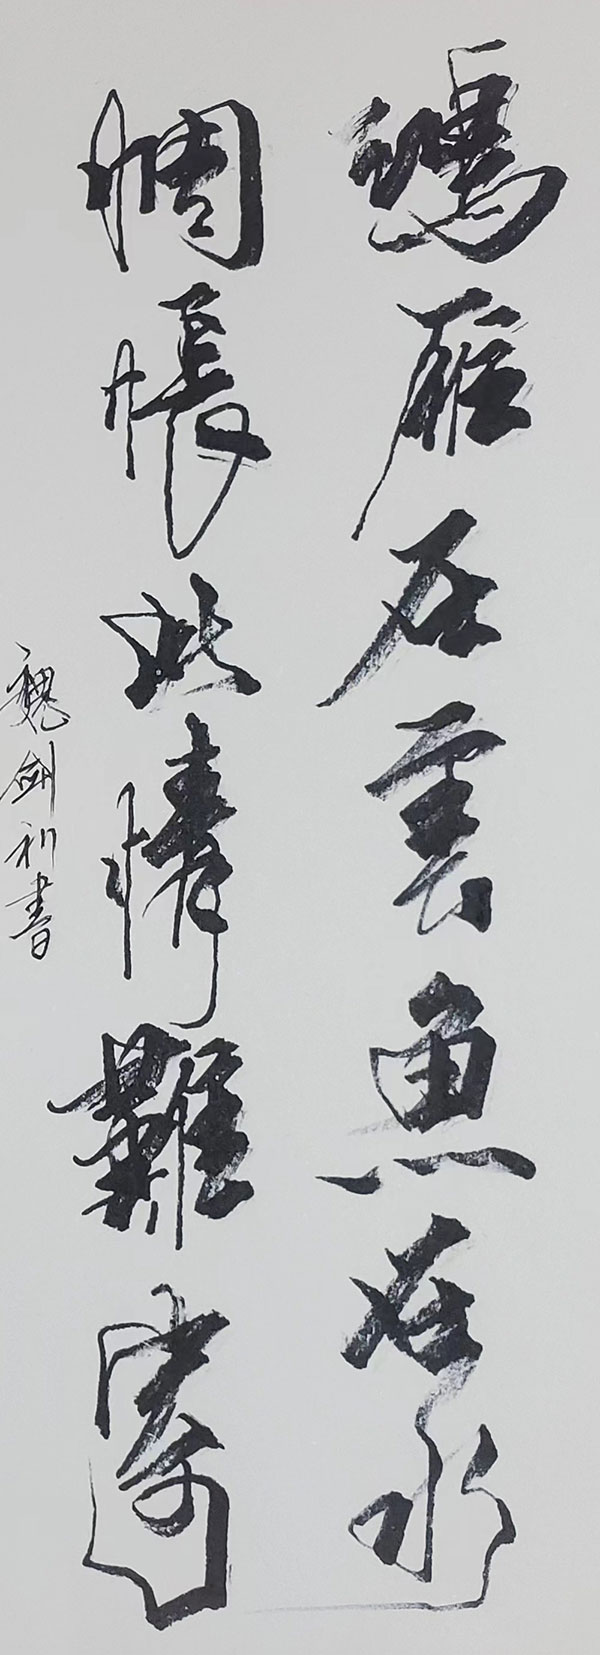 鴻雁在雲魚在水
惆悵此情難寄
魏劍利書